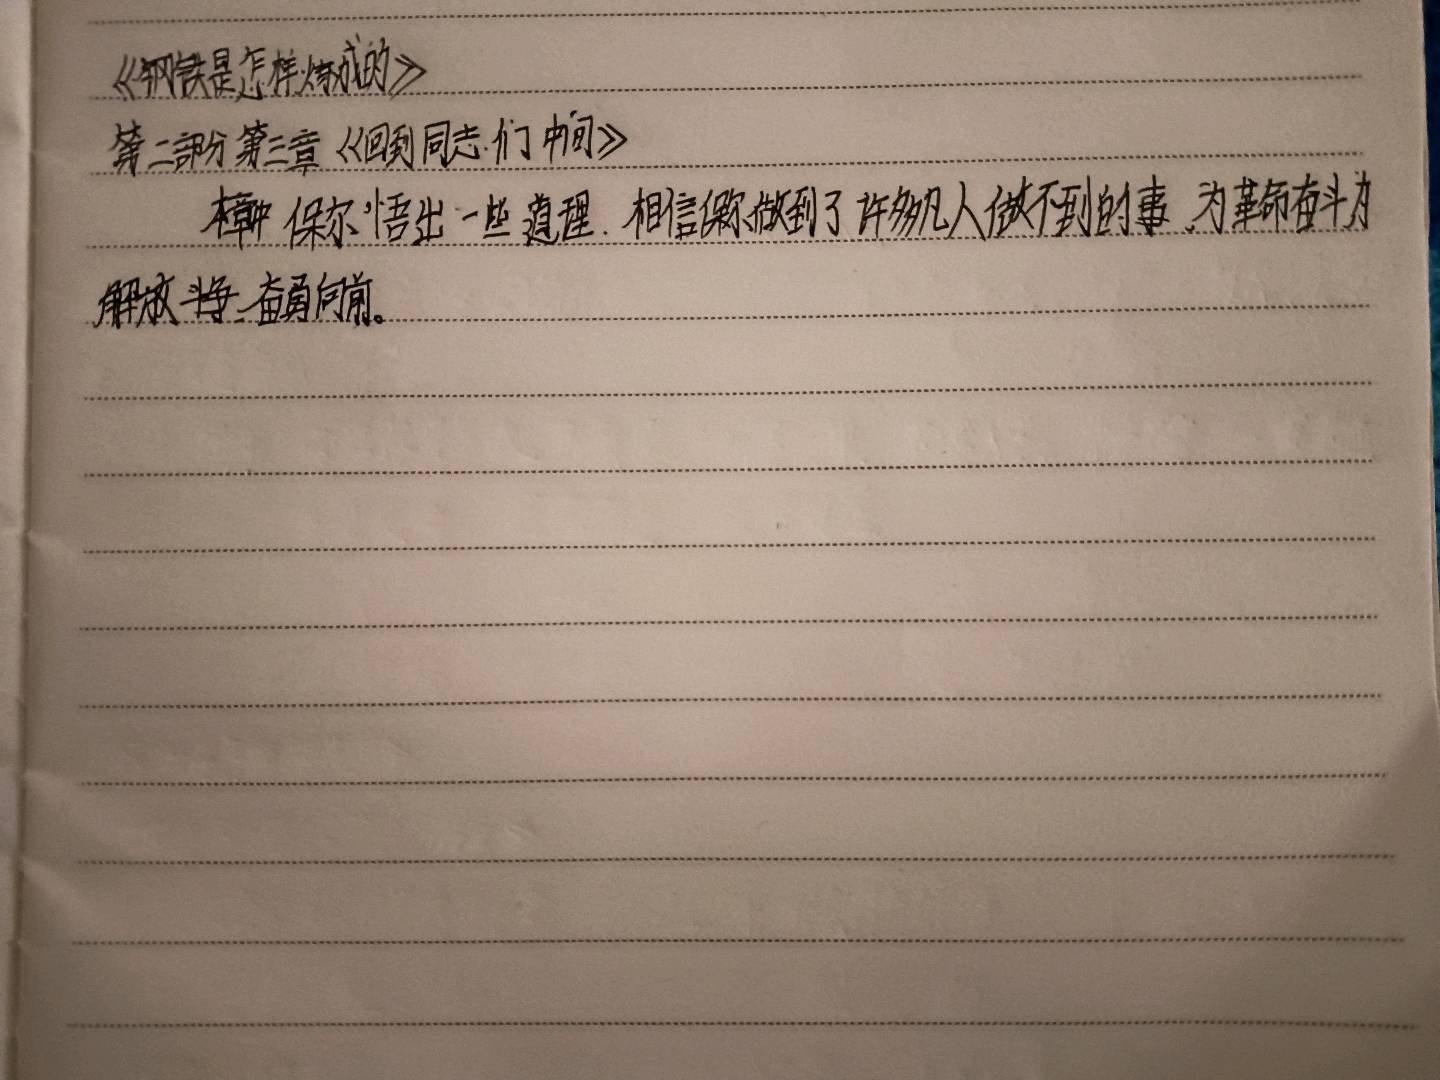 《钢铁是怎样炼成的》
第二部分第三章《回到同志们中间》
本章中保尔悟出一些道理.相信保尔做到了许多凡人做不到的事、为革命奋斗为
解放斗争、奋勇向前。